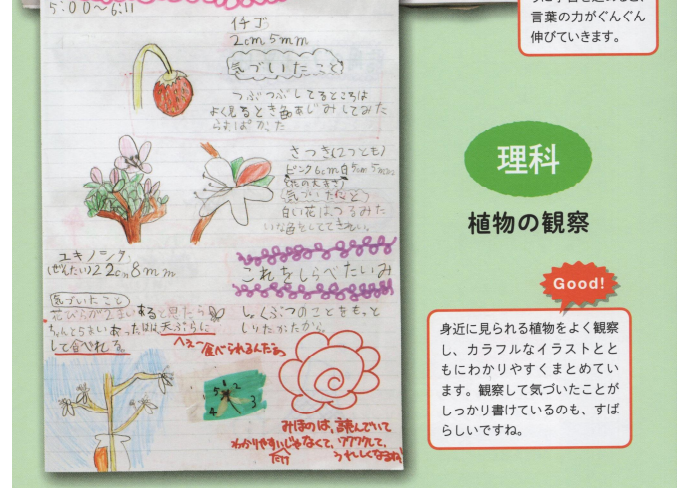 5:00〜6:11
イチゴ
2cm5mm
気づいたこと
つぶつぶしてるところは
よく見るとき色あじみしてみた
らすっぱかった
さつき(2つとも)
ピンク6cm白5cm5mm
(花の大きさ)
気づいたこと
白い花はつるみた
いな色をしててきれい。
ユキノシタ
(ぜんたい)22cm8mm
気づいたこと
花びらが2まいあると見たら
ちゃんと5まいあった
天ぷらに
して食べれる。
これをしらべたいみ
しょくぶつのことをもっと
しりたかたから。
へぇ〜食べられるんだぁ
5 1 2
4 3
みほのは、読んでいて
わかりやすいじゃなくて、ワクワクして、
だけ
うれしくなるね
言葉の力がぐんぐん
伸びていきます。
理科
植物の観察
Good!
身近に見られる植物をよく観察
し、カラフルなイラストとと
もにわかりやすくまとめてい
ます。観察して気づいたことが
しっかり書けているのも、すば
らしいですね。